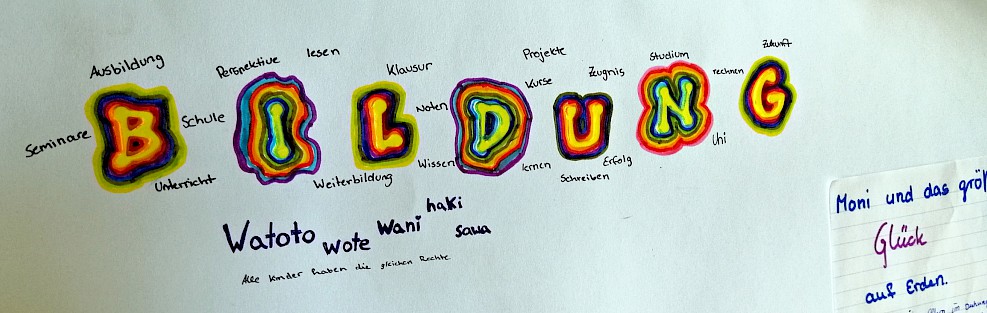 Ausbildung
Perspektive
lesen
Klausur
Projekte
Kurse
Zeugnis
Studium
rechnen
Zukunft
BILDUNG
Seminare
Schule
Noten
Unterricht
Weiterbildung
Wissen
lernen
Schreiben
Erfolg
Uni
Watoto wote wani haki sawa
Alle Kinder haben die gleichen Rechte
Moni und das größ
Glück
auf Erden.